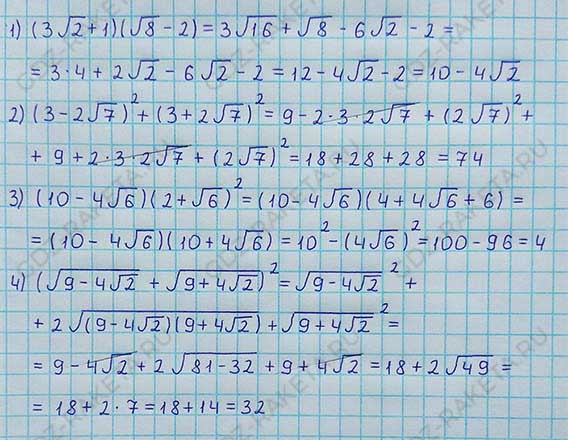 1) (3√2+1)(√8-2) = 3√16 + √8 - 6√2 - 2 =
= 3·4 + 2√2 - 6√2 - 2 = 12 - 4√2 - 2 = 10 - 4√2
2) (3-2√7)² + (3+2√7)² = 9 - 2·3·2√7 + (2√7)² +
+ 9 + 2·3·2√7 + (2√7)² = 18 + 28 + 28 = 74
3) (10-4√6)(2+√6)² = (10-4√6)(4+4√6+6) =
= (10-4√6)(10+4√6) = 10² - (4√6)² = 100 - 96 = 4
4) (√(9-4√2) + √(9+4√2))² = √(9-4√2)² +
+ 2√((9-4√2)(9+4√2)) + √(9+4√2)² =
= 9 - 4√2 + 2√(81-32) + 9 + 4√2 = 18 + 2√49 =
= 18 + 2·7 = 18 + 14 = 32
GDZ-RAKETA.RU